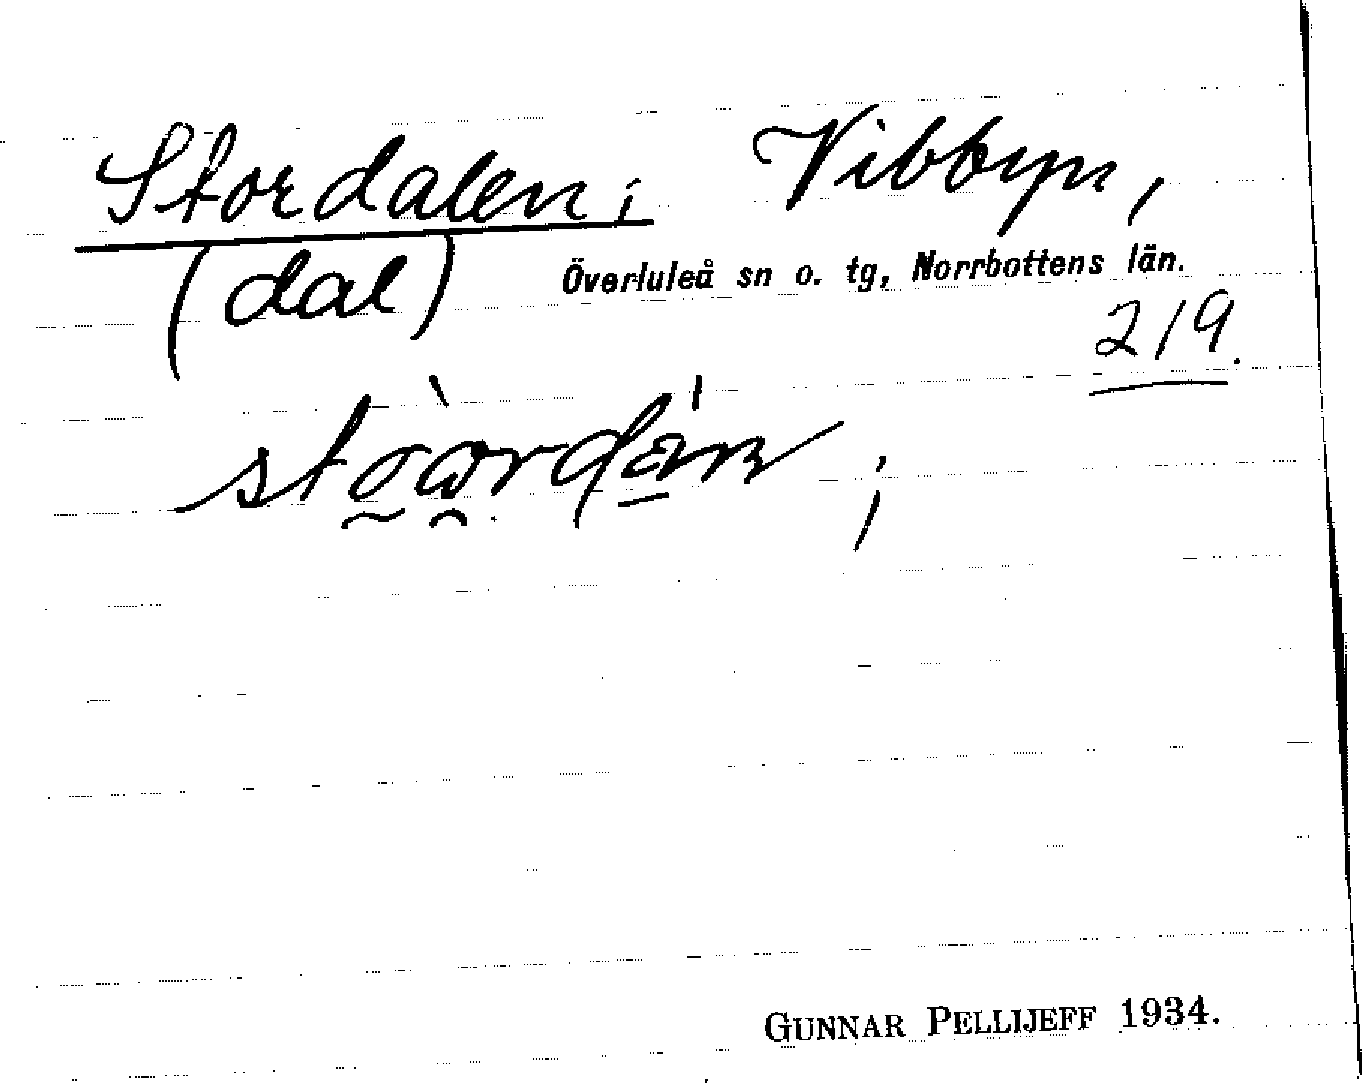 Stordalen; Vibbyn,
(dal) Överluleå sn o. tg, Norrbottens län.
219.
GUNNAR PELLIJEFF 1934.